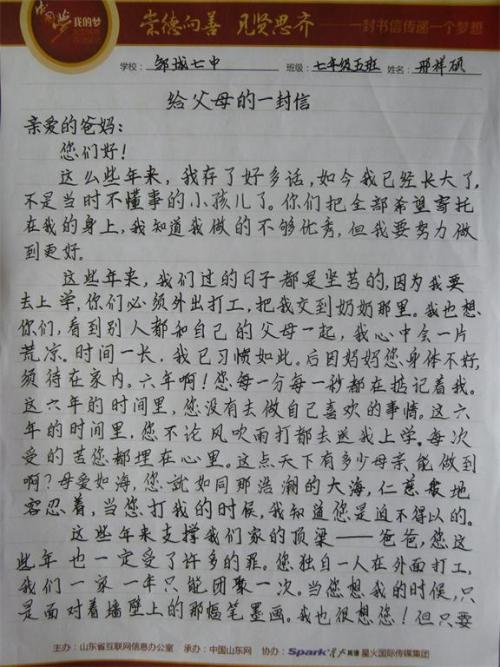 中国梦 我的梦
崇德向善 见贤思齐 一封书信传递一个梦想
学校：邹城七中 班级：七年级五班 姓名：邢祥硕
给父母的一封信
亲爱的爸妈：
您们好！
这么些年来，我存了好多话，如今我已经长大了，
不是当时不懂事的小孩儿了。你们把全部希望寄托
在我的身上，我知道我做的不够优秀，但我要努力做
到更好。
这些年来，我们过的日子都是坚苦的，因为我要
去上学，你们必须外出打工，把我交到奶奶那里。我也想
你们，看到别人都和自己的父母一起，我心中会一片
荒凉。时间一长，我已习惯如此。后因妈妈您身体不好，
须待在家内。六年啊！您每一分每一秒都在挂记着我。
这六年的时间里，您没有去做自己喜欢的事情。这六
年的时间里，您不论风吹雨打都去送我上学。每次
受的苦您都埋在心里。这点天下有多少母亲能做到
啊？母爱如海，您就如同那浩瀚的大海，仁慈般地
容忍着，当您打我的时候，我知道您是迫不得以的。
这些年来支撑我们家的顶梁——爸爸，您这
些年也一定受了许多的罪。您独自一人在外面打工，
我们一家一年只能团聚一次。当您想我的时候，只
是面对着墙壁上的那幅笔墨画。我也很想您！但只要
主办：山东省互联网信息办公室 承办：中国山东网 协办：Spark 星火英语 星火国际传媒集团